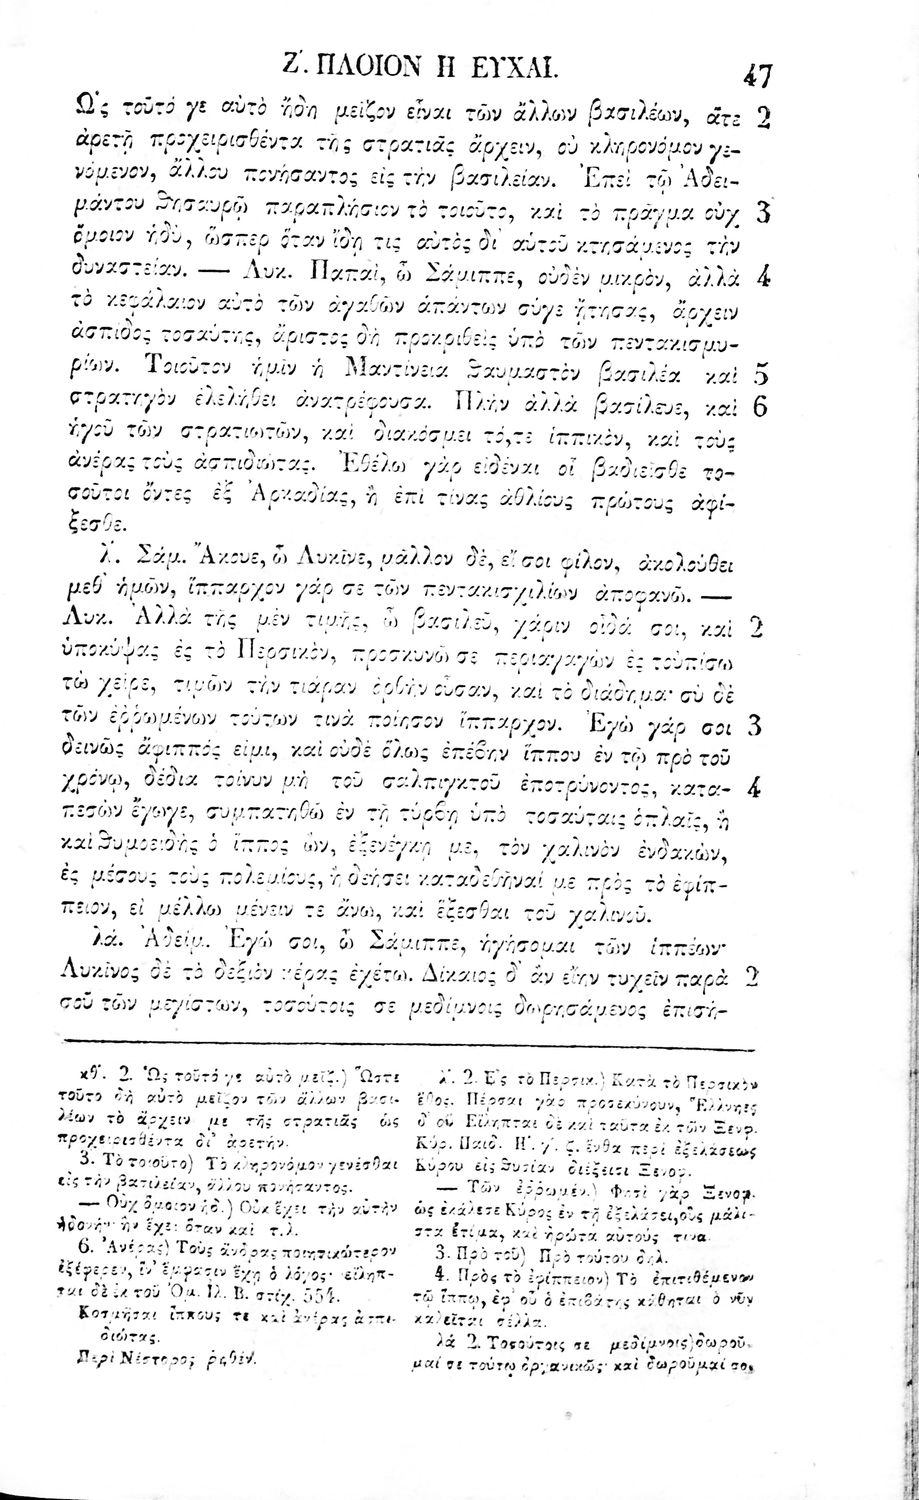 Ζ΄. ΠΛΟΙΟΝ Η ΕΥΧΑΙ.
47
Ὡς τοῦτό γε αὐτὸ ἤδη μεῖζον εἶναι τῶν ἄλλων βασιλέων, ἅτε 2
ἀρετῇ προχειρισθέντα τῆς στρατιᾶς ἄρχειν, οὐ κληρονόμον γε-
νόμενον, ἄλλου πονήσαντος εἰς τὴν βασιλείαν. Ἐπεὶ τῷ Ἀδει-
μάντου θησαυρῷ παραπλήσιον τὸ τοιοῦτο, καὶ τὸ πρᾶγμα οὐχ 3
ὅμοιον ἡδὺ, ὥσπερ ὅταν ἴδῃ τις αὐτὸς δι᾽ αὑτοῦ κτησάμενος τὴν
δυναστείαν. — Λυκ. Παπαὶ, ὦ Σάμιππε, οὐδὲν μικρὸν, ἀλλὰ 4
τὸ κεφάλαιον αὐτὸ τῶν ἀγαθῶν ἁπάντων σύγε ᾔτησας, ἄρχειν
ἀσπίδος τοσαύτης, ἄριστος δὴ προκριθεὶς ὑπὸ τῶν πεντακισμυ-
ρίων. Τοιοῦτον ἡμῖν ἡ Μαντίνεια θαυμαστὸν βασιλέα καὶ 5
στρατηγὸν ἐλελήθει ἀνατρέφουσα. Πλὴν ἀλλὰ βασίλευε, καὶ 6
ἡγοῦ τῶν στρατιωτῶν, καὶ διακόσμει τό,τε ἱππικὸν, καὶ τοὺς
ἀνέρας τοὺς ἀσπιδιώτας. Ἐθέλω γὰρ εἰδέναι οἷ βαδιεῖσθε το-
σοῦτοι ὄντες ἐξ Ἀρκαδίας, ἢ ἐπὶ τίνας ἀθλίους πρώτους ἀφί-
ξεσθε.
λ΄. Σάμ. Ἄκουε, ὦ Λυκῖνε, μᾶλλον δὲ, εἴ σοι φίλον, ἀκολούθει
μεθ᾽ ἡμῶν, ἵππαρχον γάρ σε τῶν πεντακισχιλίων ἀποφανῶ. —
Λυκ. Ἀλλὰ τῆς μὲν τιμῆς, ὦ βασιλεῦ, χάριν οἶδά σοι, καὶ 2
ὑποκύψας ἐς τὸ Περσικὸν, προσκυνῶ σε περιαγαγὼν ἐς τοὐπίσω
τὼ χεῖρε, τιμῶν τὴν τιάραν ὀρθὴν οὖσαν, καὶ τὸ διάδημα· σὺ δὲ
τῶν ἐῤῥωμένων τούτων τινὰ ποίησον ἵππαρχον. Ἐγὼ γάρ σοι 3
δεινῶς ἄφιππός εἰμι, καὶ οὐδὲ ὅλως ἐπέβην ἵππου ἐν τῷ πρὸ τοῦ
χρόνῳ, δέδια τοίνυν μὴ τοῦ σαλπιγκτοῦ ἐποτρύνοντος, κατα- 4
πεσὼν ἔγωγε, συμπατηθῶ ἐν τῇ τύρβῃ ὑπὸ τοσαύταις ὁπλαῖς, ἢ
καὶ θυμοειδὴς ὁ ἵππος ὢν, ἐξενέγκῃ με, τὸν χαλινὸν ἐνδακὼν,
ἐς μέσους τοὺς πολεμίους, ἢ δεήσει καταδεθῆναί με πρὸς τὸ ἐφίπ-
πειον, εἰ μέλλω μένειν τε ἄνω, καὶ ἕξεσθαι τοῦ χαλινοῦ.
λά. Ἀδείμ. Ἐγώ σοι, ὦ Σάμιππε, ἡγήσομαι τῶν ἱππέων·
Λυκῖνος δὲ τὸ δεξιὸν κέρας ἐχέτω. Δίκαιος δ᾽ ἂν εἴην τυχεῖν παρὰ 2
σοῦ τῶν μεγίστων, τοσούτοις σε μεδίμνοις δωρησάμενος ἐπισή-
κθ΄. 2. Ὡς τοῦτό γε αὐτὸ μεῖζ.) Ὥστε
τοῦτο δὴ αὐτὸ μεῖζον τῶν ἄλλων βασι-
λέων τὸ ἄρχειν με τῆς στρατιᾶς ὡς
προχειρισθέντα δι᾽ ἀρετήν.
3. Τὸ τοιοῦτο) Τὸ κληρονόμον γενέσθαι
εἰς τὴν βασιλείαν, ἄλλου πονήσαντος.
— Οὐχ ὅμοιον ἡδ.) Οὐκ ἔχει τὴν αὐτὴν
ἡδονὴν ἣν ἔχει ὅταν καὶ τ.λ.
6. Ἀνέρας) Τοὺς ἄνδρας ποιητικώτερον
ἐξέφερεν, ἵν᾽ ἔμφασιν ἔχῃ ὁ λόγος· εἴληπ-
ται δὲ ἐκ τοῦ Ὁμ. Ἰλ. Β. στίχ. 554.
Κοσμῆσαι ἵππους τε καὶ ἀνέρας ἀσπι-
διώτας.
Περὶ Νέστορος ῥηθέν.
λ΄. 2. Ἐς τὸ Περσικ.) Κατὰ τὸ Περσικὸν
ἔθος. Πέρσαι γὰρ προσεκύνουν, Ἕλληνες
δ᾽ οὔ Εἴληπται δὲ καὶ ταῦτα ἐκ τῶν Ξενφ.
Κύρ. Παιδ. Η΄. γ΄. ζ. ἔνθα περὶ ἐξελάσεως
Κύρου εἰς θυσίαν διέξεισι Ξενοφ.
— Τῶν ἐῤῥωμέν.) Φησὶ γὰρ Ξενοφ.
ὡς ἐκάλεσε Κύρος ἐν τῇ ἐξελάσει, οὓς μάλι-
στα ἐτίμα, καὶ ἠρώτα αὐτοὺς τινα.
3. Πρὸ τοῦ) Πρὸ τούτου δηλ.
4. Πρὸς τὸ ἐφίππειον) Τὸ ἐπιτιθέμενον
τῷ ἵππῳ, ἐφ᾽ οὗ ὁ ἐπιβάτης κάθηται ὃ νῦν
καλεῖται σέλλα.
λά 2. Τοσούτοις σε μεδίμνοις) δωροῦ-
μαί σε τούτῳ ὀργανικῶς· καὶ δωροῦμαί σοι